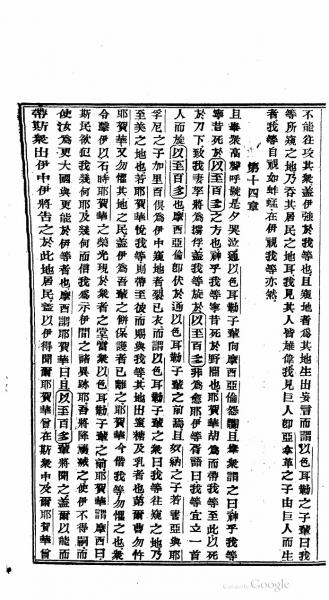 不能往攻其衆蓋伊強於我等也且窺地者爲其地生出妄言而謂以色耳勒子輩曰我
等所窺之地乃吞其居民之地耳我見其人皆雄偉我見巨人卽亞拿革之子由巨人而生
者我等自視如蚱蜢在伊視我等亦然
第十四章
且畢衆高聲呼號是夕哭泣通以色耳勒子輩向摩西亞倫怨讟且畢衆謂之曰神乎我等
寧昔死於以至百多之方也神乎我等寧昔死於野間也耶賀華胡爲而帶我等至此以死
於刀下致我妻孥將爲擄俘蓋我等旋於以至百多非爲愈耶伊等胥語曰我等宜立一首
人而旋以至百多也摩西亞倫卽伏於通以色耳勒子輩之前焉且奴納之子若書亞與耶
孚尼之子加里百俱爲伊中窺地者裂己衣而謂以色耳勒子輩曰我等往窺之地乃
至美之地也若耶賀華悅我等則帶至彼而賜與我等其地出蜜糖及乳者也第爾曹勿忤
耶賀華又勿懼其地之民蓋伊爲吾輩之餅保護者已離之耶賀華今偕我等勿懼之也衆
令擊伊以石時耶賀華之榮光現於衆者之堂當衆以色耳勒子輩之前耶賀華謂摩西曰
斯民欲犯我幾何耶及幾何而信我爲示伊間之諸異跡耶吾將降瘴癘之使伊不得嗣而
使汝爲更大國與更能於伊等者也摩西謂耶賀華曰且以至百多輩將聞之蓋爾以能而
帶斯衆出伊中伊將告之於此地居民蓋以伊得聞爾耶賀華曾在斯衆中及爾耶賀華曾
Digitized by Google